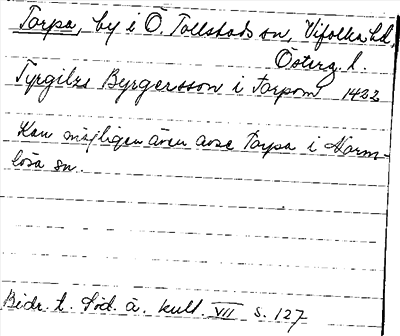 Torpa, by i Ö. Tollstads sn, Vifolka hd,
Österg. l.
Tyrgilze Byrgersson i Torpom 1432
Kan möjligen även avse Torpa i Norm-
lösa sn.
Bidr. t. Söd. ä. kult. VII s. 127